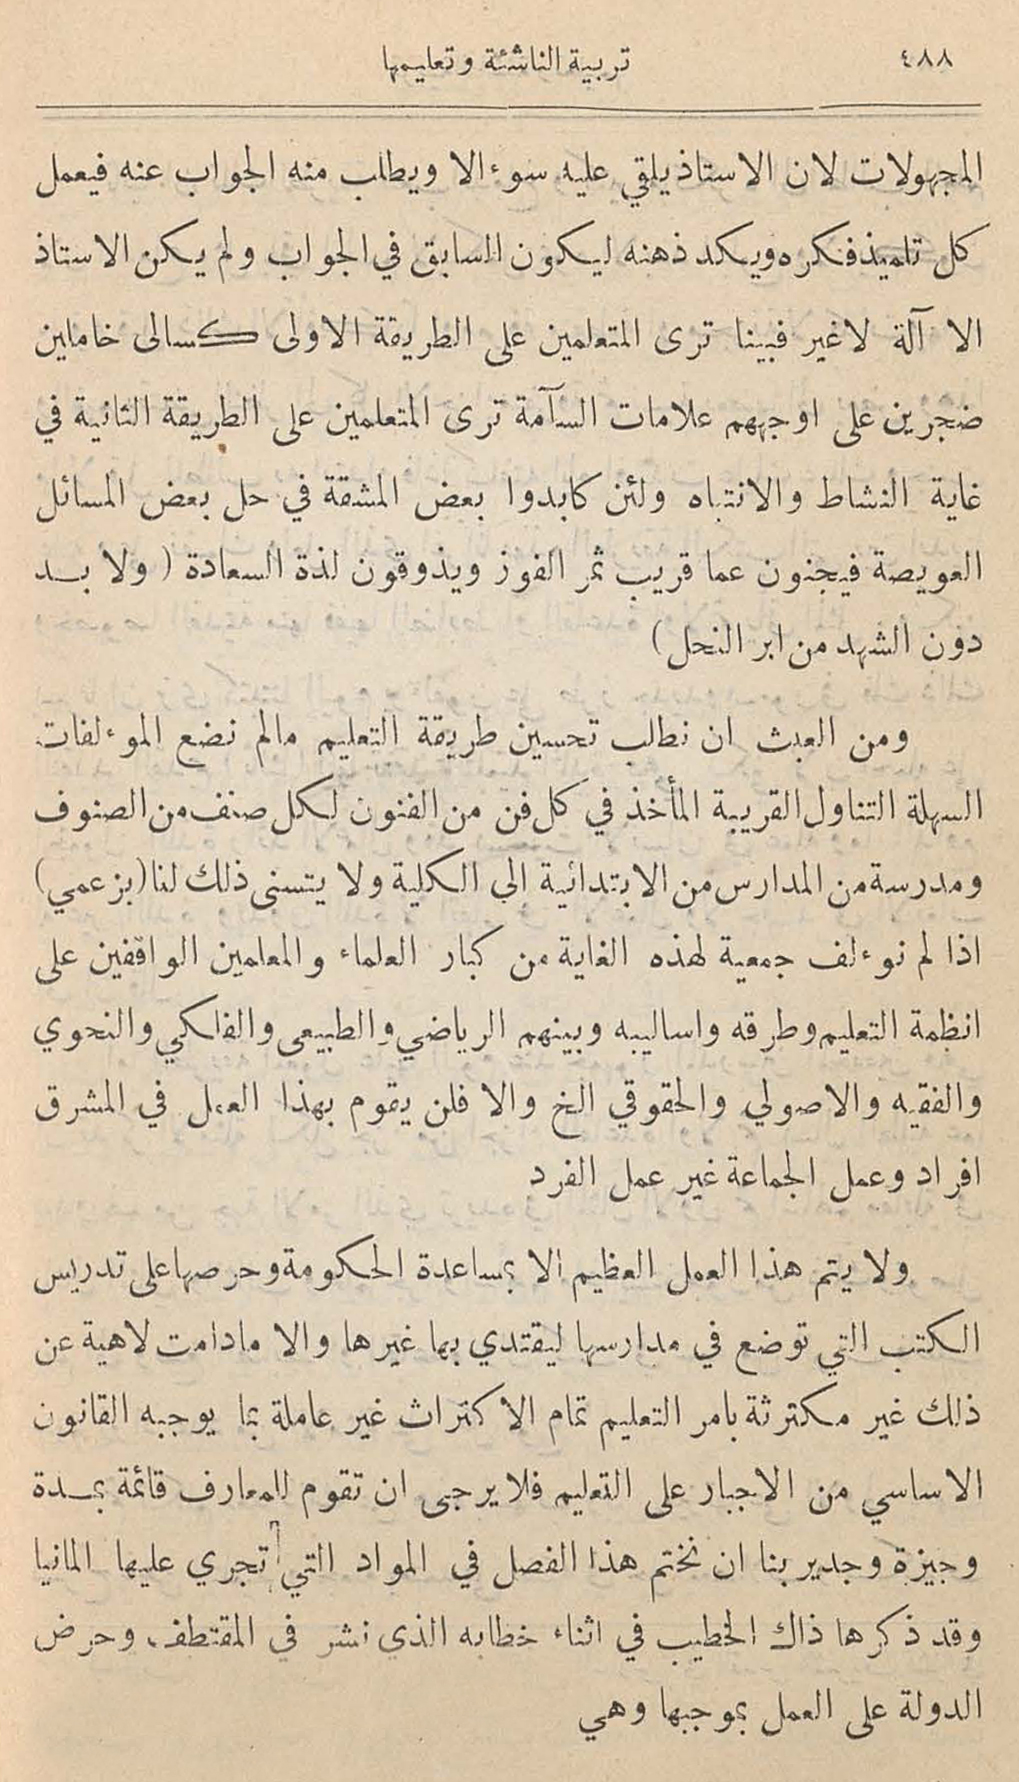 ٤٨٨
تربية الناشئة وتعليمها
المجهولات لان الاستاذ يلقي عليه سوءالا ويطلب منه الجواب عنه فيعمل
كل تلميذ فكره ويكد ذهنه ليكون السابق في الجواب ولم يكن الاستاذ
الا آلة لاغير فبينا ترى المتعلمين على الطريقة الاولى كسالى خاملين
ضجرين على اوجههم علامات السآمة ترى المتعلمين على الطريقة الثانية في
غاية النشاط والانتباه ولئن كابدوا بعض المشقة في حل بعض المسائل
العويصة فيجنون عما قريب ثمر الفوز ويذوقون لذة السعادة ( ولا بد
دون الشهد من ابر النحل)
ومن العبث ان نطلب تحسين طريقة التعليم مالم نضع الموءلفات
السهلة التناول القريبة المأخذ في كل فن من الفنون لكل صنف من الصنوف
ومدرسة من المدارس من الابتدائية إلى الكلية ولا يتسنى ذلك لنا (بزعمي)
اذا لم نوءلف جمعية لهذه الغاية من كبار العلماء والمعلمين الواقفين على
انظمة التعليم وطرقه واساليبه وبينهم الرياضي والطبيعي والفلكي والنحوي
والفقيه والاصولي والحقوقي الخ والا فلن يقوم بهذا العمل في المشرق
افراد وعمل الجماعة غير عمل الفرد
ولا يتم هذا العمل العظيم الا بمساعدة الحكومة وحرصها على تدريس
الكتب التي توضع في مدارسها ليقتدي بها غيرها والا مادامت لاهية عن
ذلك غير مكترثة بامر التعليم تمام الاكتراث غير عاملة بما يوجبه القانون
الاساسي من الاجبار على التعليم فلا يرجى ان تقوم للمعارف قائمة بمدة
وجيزة وجدير بنا ان نختم هذا الفصل في المواد التي تجري عليها المانيا
وقد ذكرها ذاك الخطيب في اثناء خطابه الذي نشر في المقتطف وحرض
الدولة على العمل بموجبها وهي